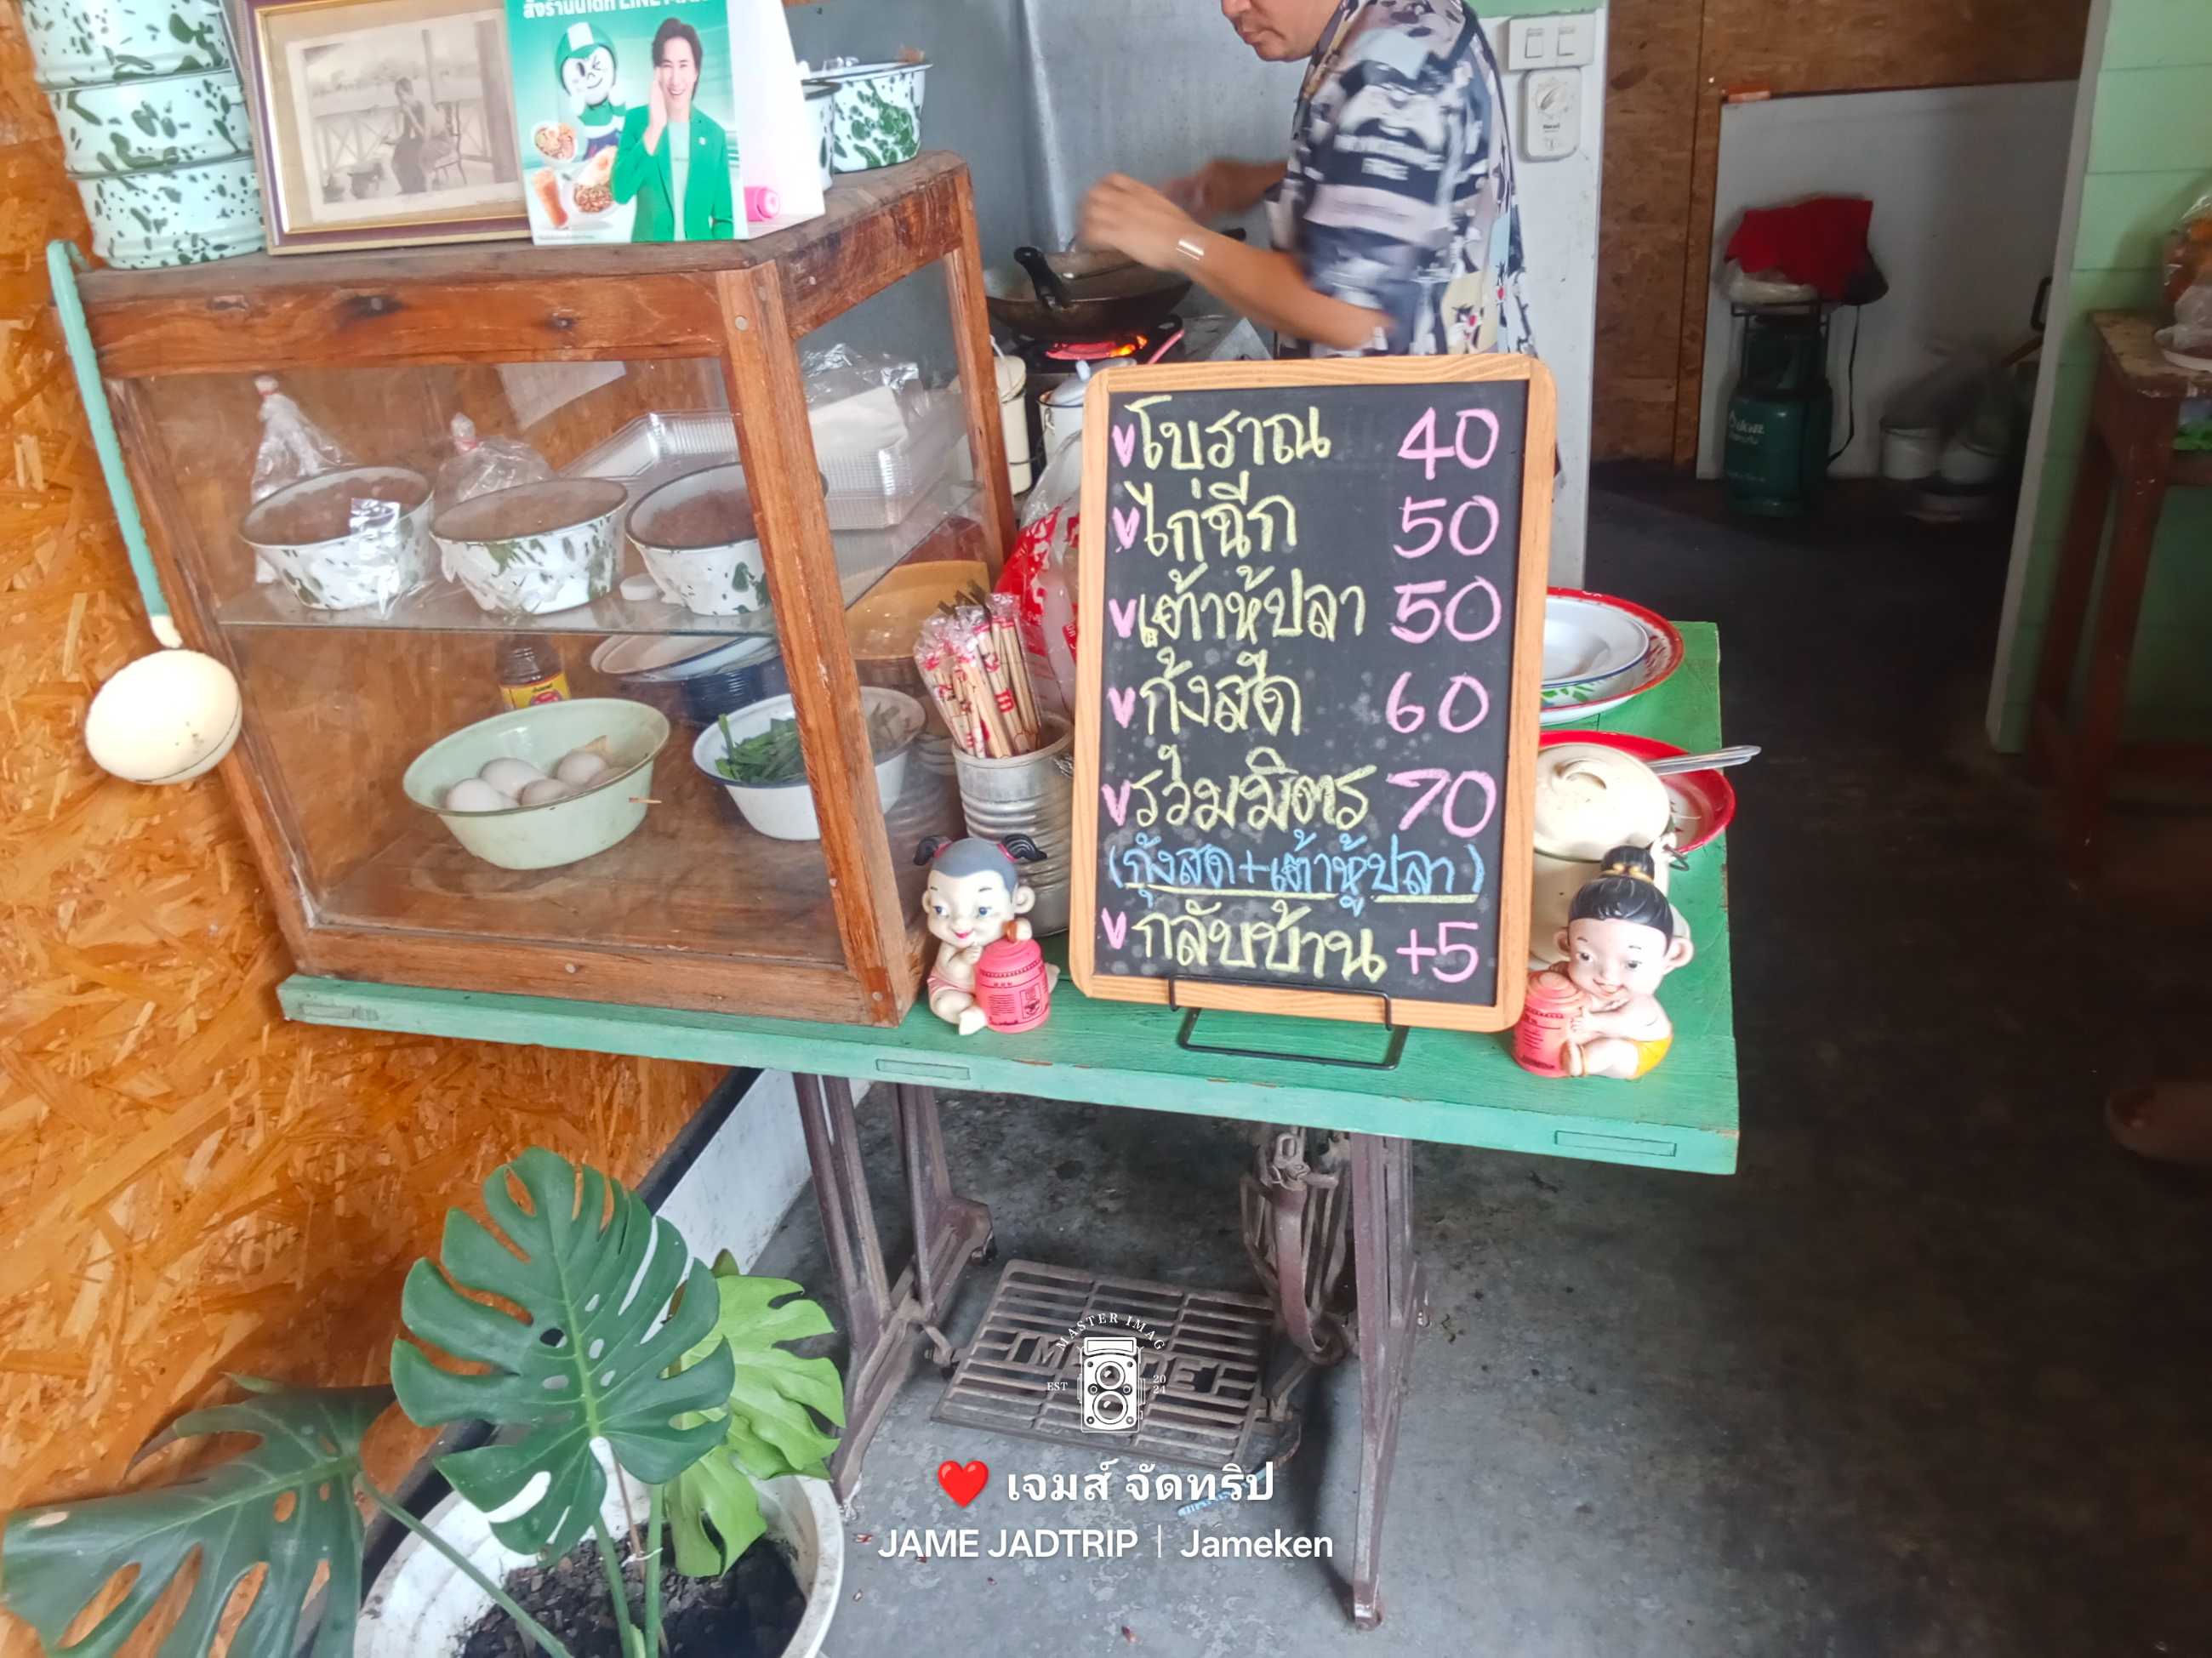 สั่งร้านนี้ได้ที่ LINE MAN
โบราณ 40
ไก่ฉีก 50
เต้าหู้ปลา 50
กุ้งสด 60
รวมมิตร 70
(กุ้งสด+เต้าหู้ปลา)
กลับบ้าน +5
MASTER IMAG
EST 2024
❤️ เจมส์ จัดทริป
JAME JADTRIP | Jameken